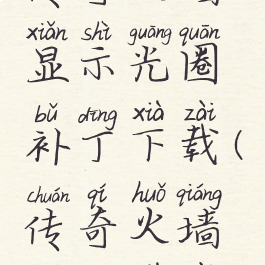 xiǎn shì guāng quān
显示光圈
bǔ dīng xià zài
补丁下载(
chuán qí huǒ qiáng
传奇火墙